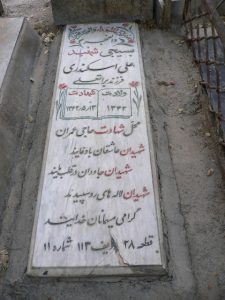 بسیجی شهید
علی اسکندری
فرزند براتعلی
ولادت شهادت
۱۳۴۳ ۱۳۶۲/۵/۱۳
محل شهادت حاجی عمران
شهیدان عاشقان باوفایند
شهیدان جاودان در قلب مایند
شهیدان لاله های روسپیدند
گرامی میهمانان خدایند
قطعه ۲۸ ردیف ۱۱۳ شماره ۱۱